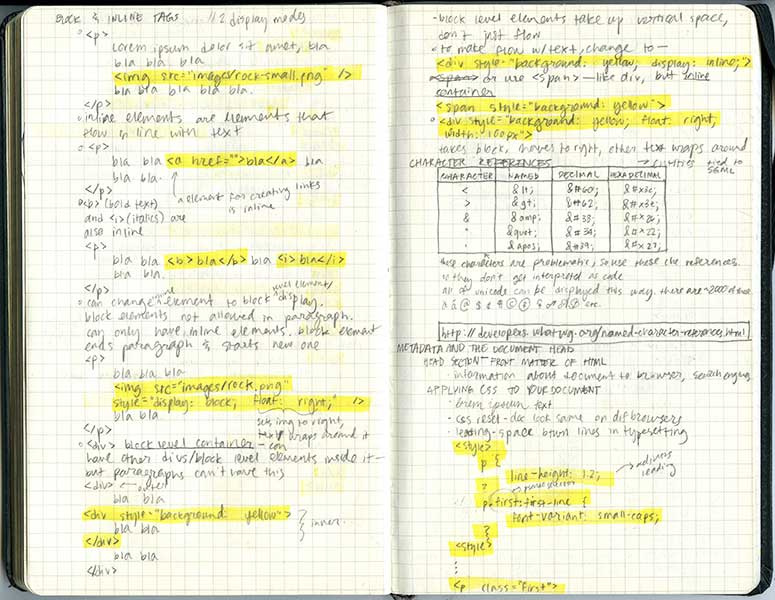 BLOCK & INLINE TAGS // 2 display modes
<p>
Lorem ipsum dolor sit amet, bla
bla bla bla
<img src="images/rock-small.png" />
bla bla bla bla bla.
</p>
inline elements are elements that
flow in line with text
<p>
bla bla <a href="">bla</a> bla
bla bla.
</p>
a element for creating links
is inline
<b> (bold text)
and <i> (italics) are
also inline
<p>
bla bla <b>bla</b> bla <i>bla</i>
bla bla.
</p>
can change inline element to block level elements/display.
block elements not allowed in paragraph.
can only have inline elements. block element
ends paragraph & starts new one
<p>
bla bla bla
<img src="images/rock.png"
style="display: block; float: right;" />
bla bla
</p>
img to right,
text wraps around it
<div> block level container - can
have other divs/block level elements inside it—
but paragraphs can't have this
<div> outer
bla bla
<div style="background: yellow">
bla bla
</div>
inner.
bla bla
</div>
- block level elements take up vertical space,
don't just flow
to make flow w/text, change to —
<div style="background: yellow; display: inline;">
or use <span> — like div, but inline
container
<span style="background: yellow">
<div style="background: yellow; float: right;
width: 100px">
takes block, moves to right, other text wraps around
CHARACTER REFERENCES → entities tied to
SGML
CHARACTER NAMED DECIMAL HEXADECIMAL
< &lt; &#60; &#x3c;
> &gt; &#62; &#x3e;
& &amp; &#38; &#x26;
" &quot; &#34; &#x22;
' &apos; &#39; &#x27;
these characters are problematic, so use these char references.
so they don't get interpreted as code
all of unicode can be displayed this way. there are ~2000 of these
etc.
http://developers.whatwg.org/named-character-references.html
METADATA AND THE DOCUMENT HEAD
HEAD SECTION FRONT MATTER OF HTML
- information about document to browser, search engines
APPLYING CSS TO YOUR DOCUMENT
- lorem ipsum text
- css reset - doc look same on dif browsers
- leading - space btwn lines in typesetting
<style>
p {
line-height: 1.2;
→ adjusts
leading
}
pseudo selector
p.first:first-line {
font-variant: small-caps;
}
<style>
<p class="first">